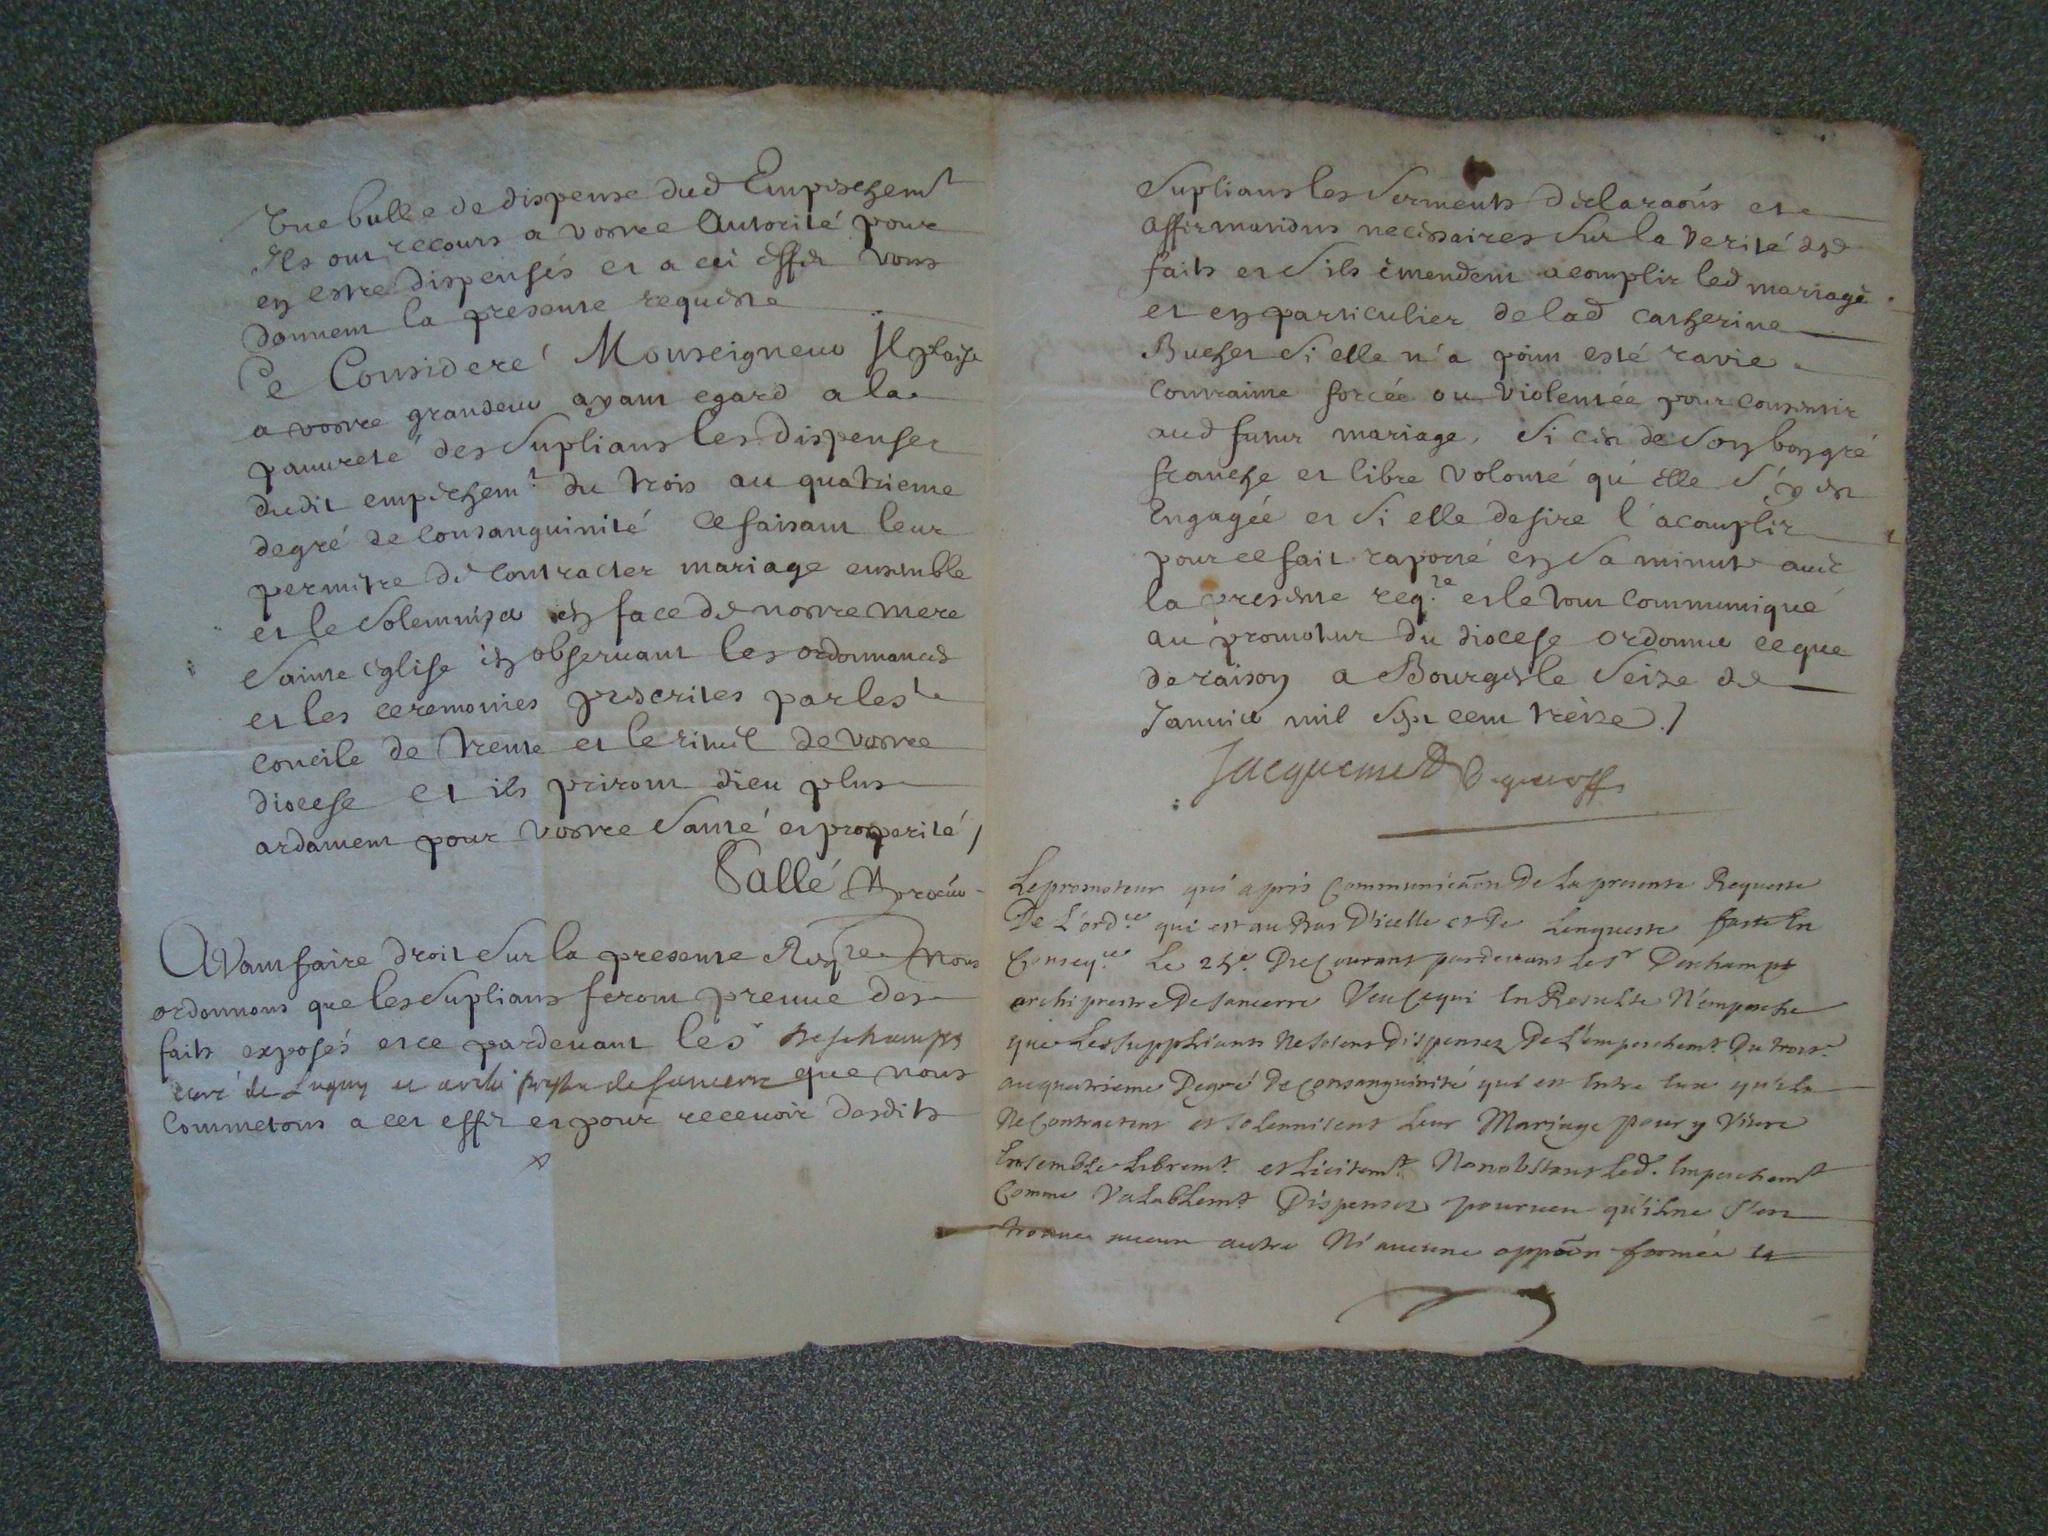 Une bulle de dispense dud Empeschemt
Ils ont recours a vostre Autorité pour
en estre dispensés et a cet effet vous
donnent la presente requeste
Ce Consideré Monseigneur Il plaise
a vostre grandeur ayant egard a la
pauvreté des Suplians les dispenser
dudit empeschemt du trois au quatrieme
degré de Consanguinité Ce faisant leur
permitre de Contracter mariage ensemble
et le Solemnizer en face de nostre mere
Sainte Eglise en observant les ordonnances
et les ceremonies prescrites par le St
Concile de trente et le rituel de vostre
diocese et ils priront dieu plus
ardament pour vostre Santé et prosperité /
Sallé procur
Avant faire droit Sur la presente Reqte Nous
ordonnons que les Suplians feront preuve des
faits exposés et ce pardevant le Sr Deschamps
curé de Lugny et archi prestre de Sancerre que nous
Commetons a cet effet et pour recevoir desdits
Suplians les Serments declaraons et
affirmations necessaires Sur la verité desd
faits et S'ils entendent acomplir led mariage
et en particulier de lad Catherine
Bucher Si elle n'a point esté ravie
Contrainte forcée ou violentée pour consentir
aud futur mariage, Si c'est de Son bon gré
franche et libre volonté qu'elle S'y est
Engagée et Si elle desire l'acomplir
pour ce fait raporté en Sa minute avec
la presente reqte et le tout Communiqué
au promoteur du diocese ordonner ce que
de raison a Bourges le Seize de
Janvier mil Sept cent treize ./
Jacquemet
Le promoteur qui a pris Communicaon De la presente Requeste
De L'ordce qui est au Bas D'icelle et De Lenqueste faite En
Conseqce Le 25e Du Courant pardevant le Sr Deschamps
archiprestre De Sancerre Veu Ce qui En Resulte N'empesche
que Les Supplians Ne Soient Dispensez De L'empeschemt Du trois
au quatrieme Degré De Consanguinité qui est Entre Eux qu'ils
Ne Contractent et Solennisent Leur Mariage pour y Vivre
Ensemble Libremt et Licitemt Nonobstant Led. Empeschemt
Comme Valablemt Dispensez pourveu qu'il ne S'en
trouve aucun autre Ni aucune oppoôn formée et